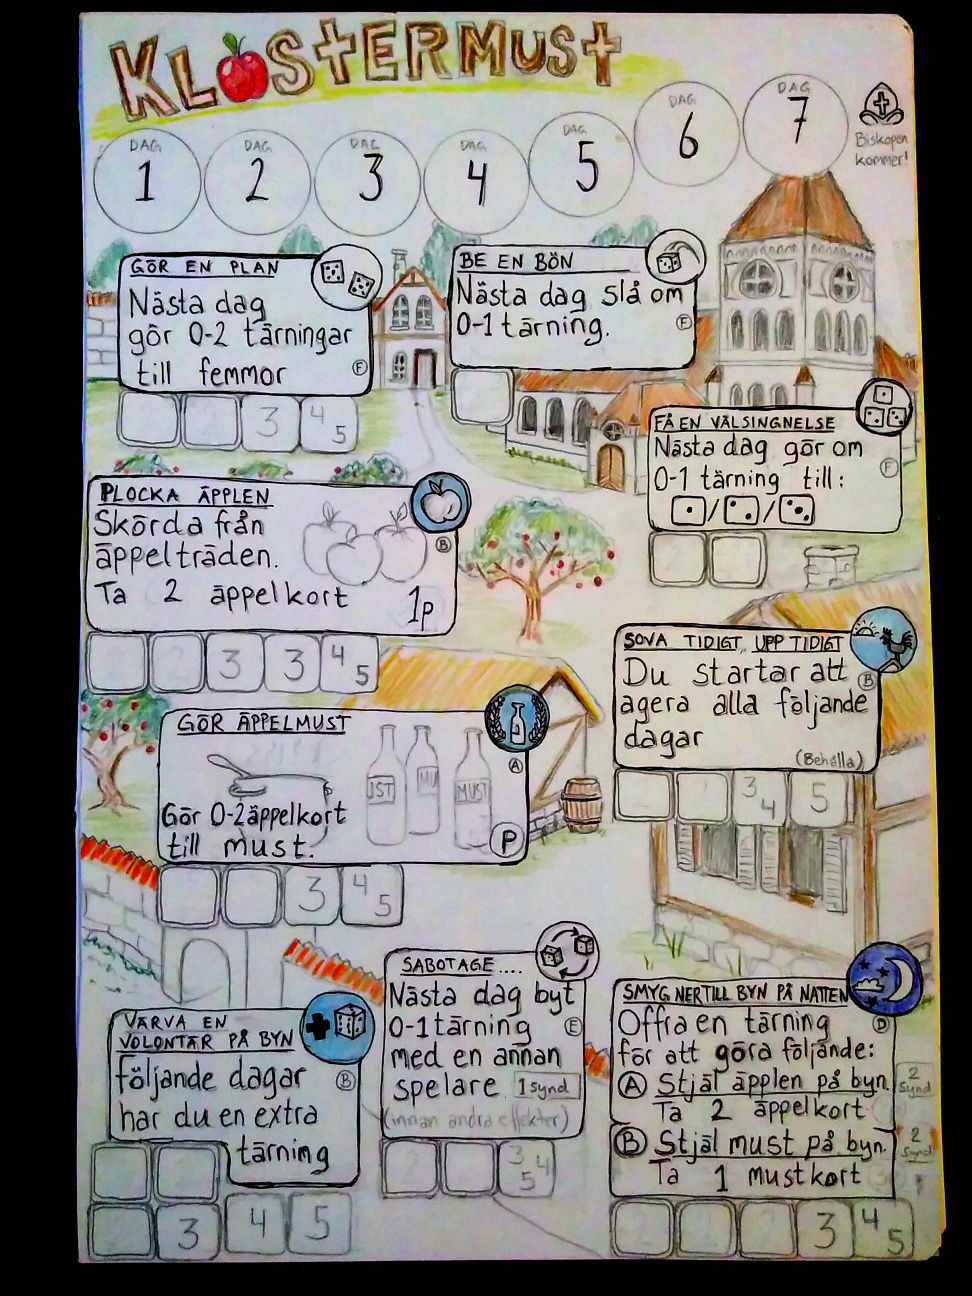 KLOSTERMUST
DAG 1
DAG 2
DAG 3
DAG 4
DAG 5
DAG 6
DAG 7
Biskopen
kommer!
GÖR EN PLAN
Nästa dag
gör 0-2 tärningar
till femmor
F
3 4 5
BE EN BÖN
Nästa dag slå om
0-1 tärning.
F
FÅ EN VÄLSINGNELSE
Nästa dag gör om
0-1 tärning till:
/ /
F
PLOCKA ÄPPLEN
Skörda från
äppelträden.
Ta 2 äppelkort
B
1p
3 3 4 5
SOVA TIDIGT, UPP TIDIGT
Du startar att
agera alla följande
dagar
B
(Behålla)
3 4 5
GÖR ÄPPELMUST
UST MU MUST
Gör 0-2 äppelkort
till must.
A
P
3 4 5
VÄRVA EN
VOLONTÄR PÅ BYN
följande dagar
har du en extra
tärning
B
3 4 5
SABOTAGE....
Nästa dag byt
0-1 tärning
med en annan
spelare. 1 synd
(innan andra effekter)
E
3 4 5
SMYG NER TILL BYN PÅ NATTEN
Offra en tärning
för att göra följande:
D
A Stjäl äpplen på byn.
Ta 2 äppelkort
2 Synd
B Stjäl must på byn.
Ta 1 mustkort
2 Synd
3 4 5